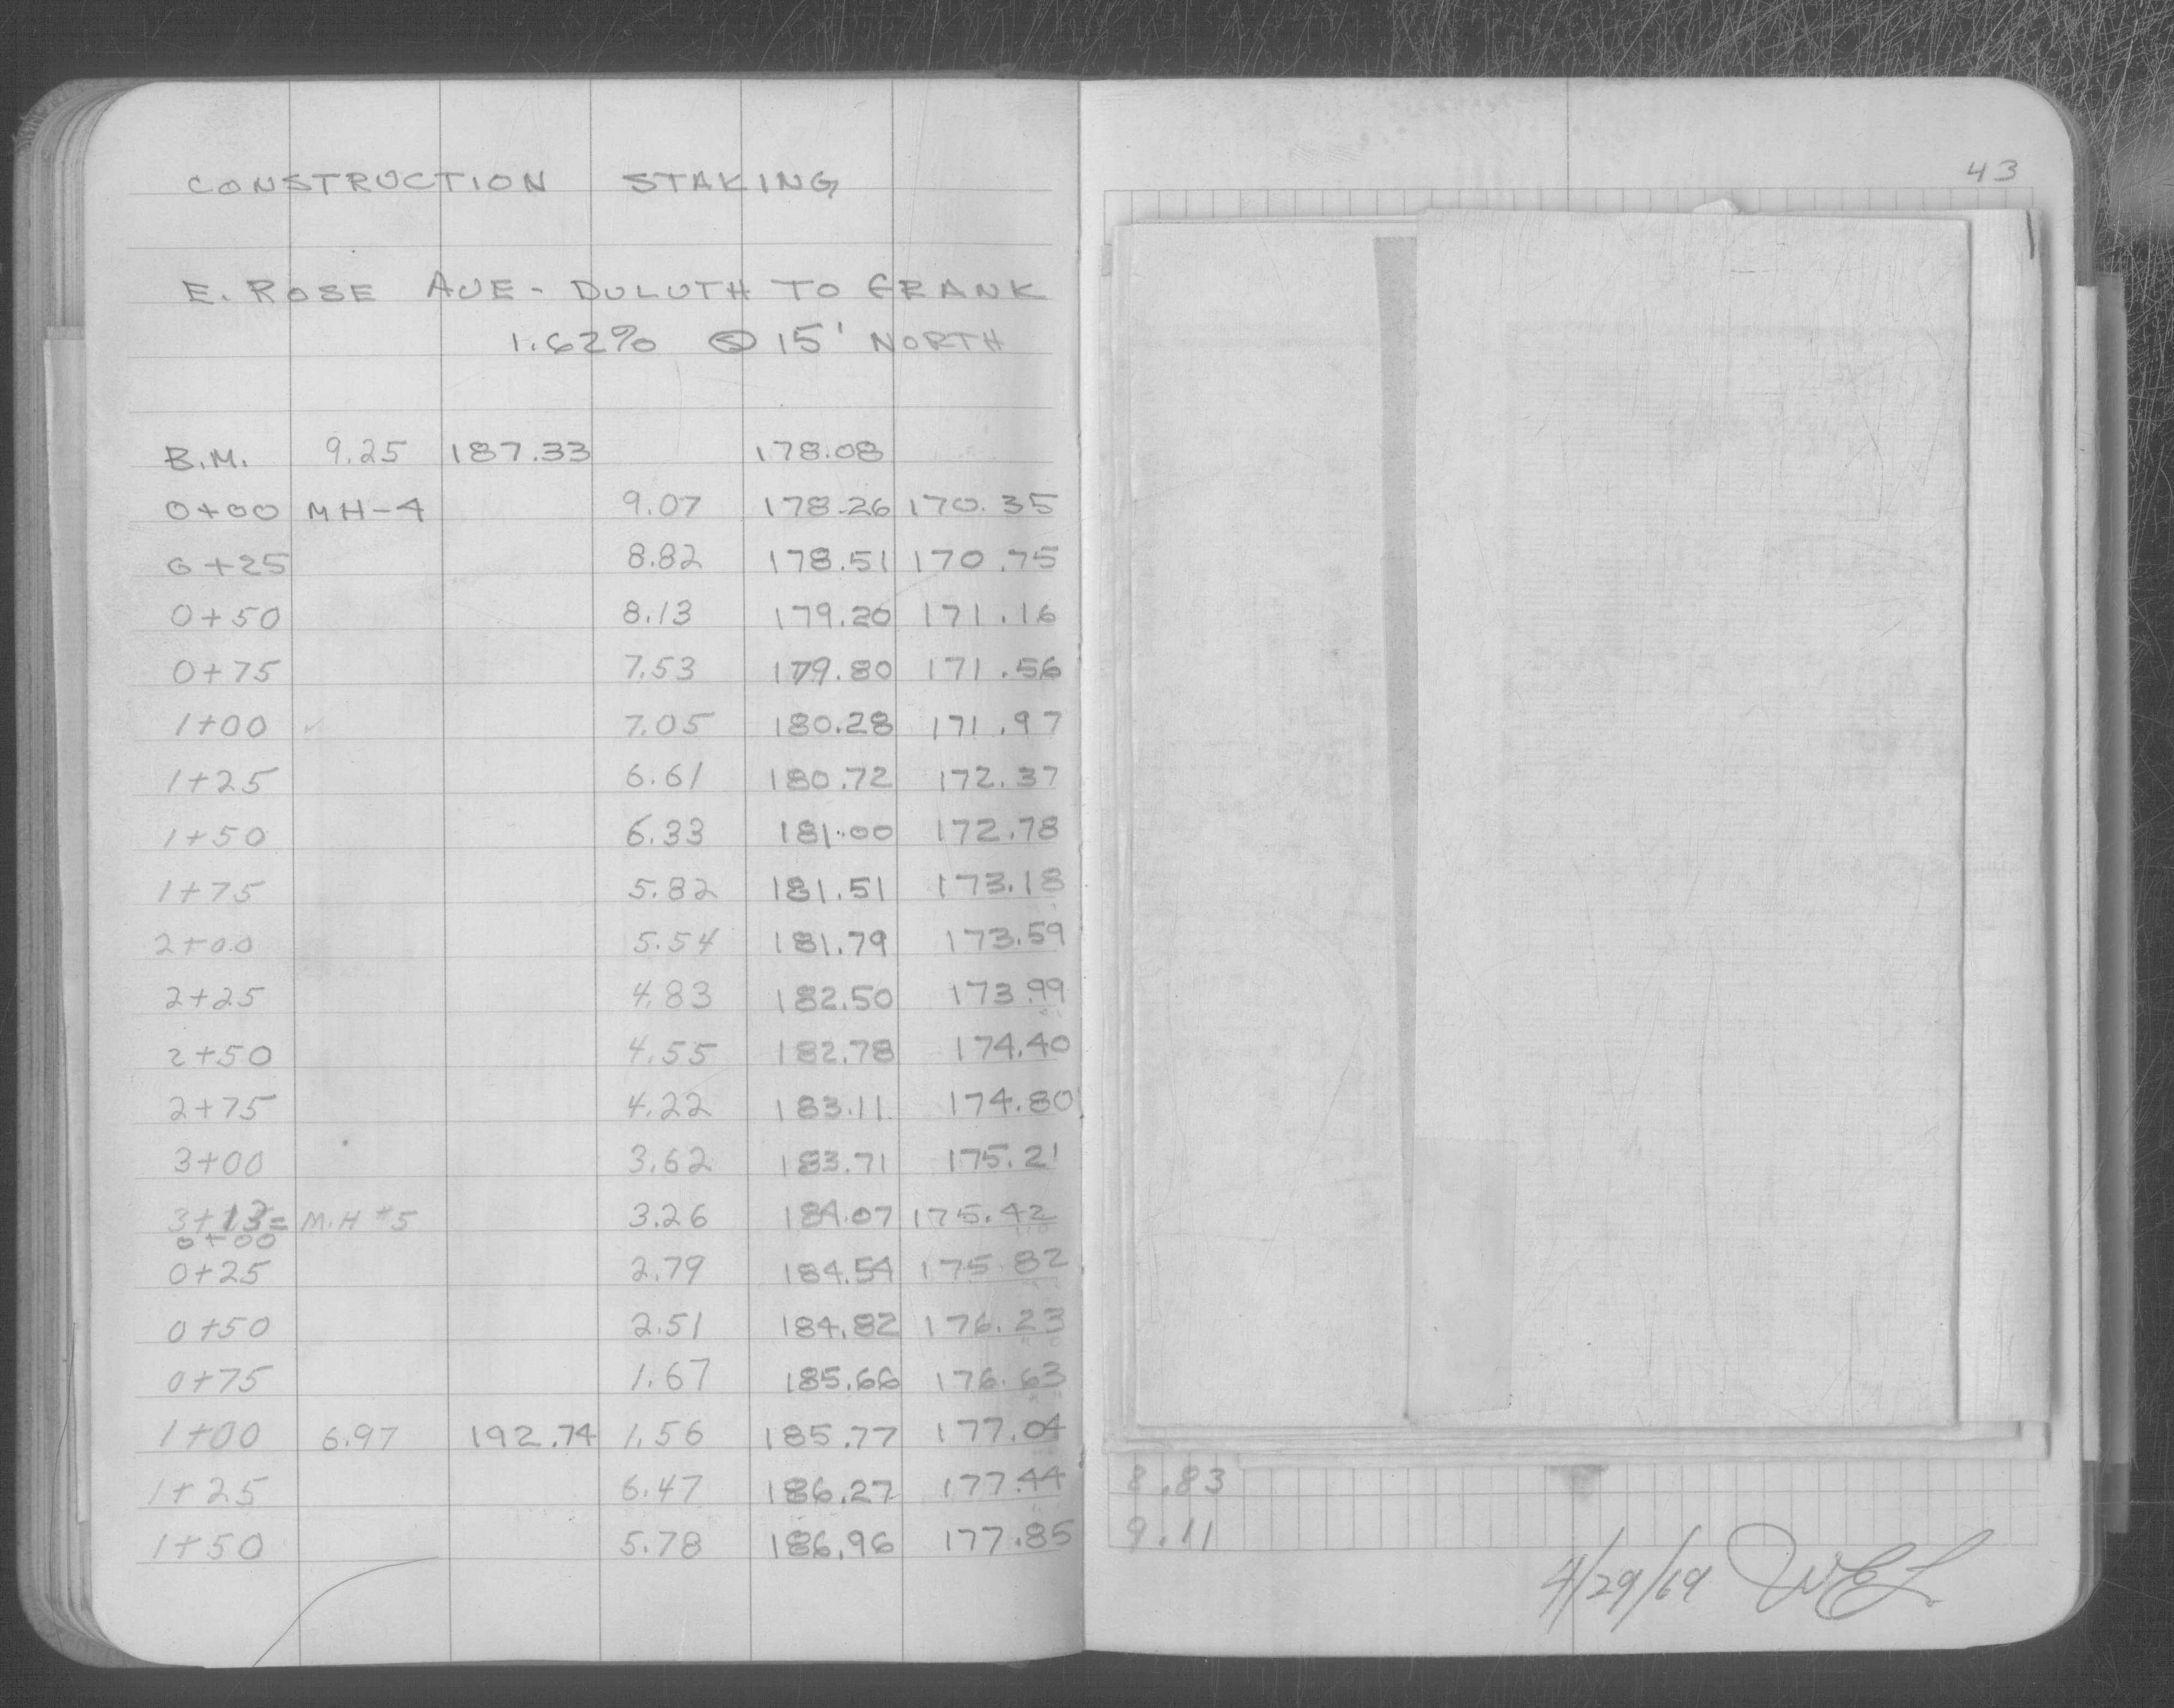 CONSTRUCTION STAKING
E. ROSE AVE - DULUTH TO FRANK
1.62% @ 15' NORTH
B.M. 9.25 187.33 178.08
0+00 MH-4 9.07 178.26 170.35
0+25 8.82 178.51 170.75
0+50 8.13 179.20 171.16
0+75 7.53 179.80 171.56
1+00 7.05 180.28 171.97
1+25 6.61 180.72 172.37
1+50 6.33 181.00 172.78
1+75 5.82 181.51 173.18
2+00 5.54 181.79 173.59
2+25 4.83 182.50 173.99
2+50 4.55 182.78 174.40
2+75 4.22 183.11 174.80
3+00 3.62 183.71 175.21
3+13= M.H #5 3.26 184.07 175.42
0+00
0+25 2.79 184.54 175.82
0+50 2.51 184.82 176.23
0+75 1.67 185.66 176.63
1+00 6.97 192.74 1.56 185.77 177.04
1+25 6.47 186.27 177.44
1+50 5.78 186.96 177.85
43
8.83
9.11
4/29/69 WEL